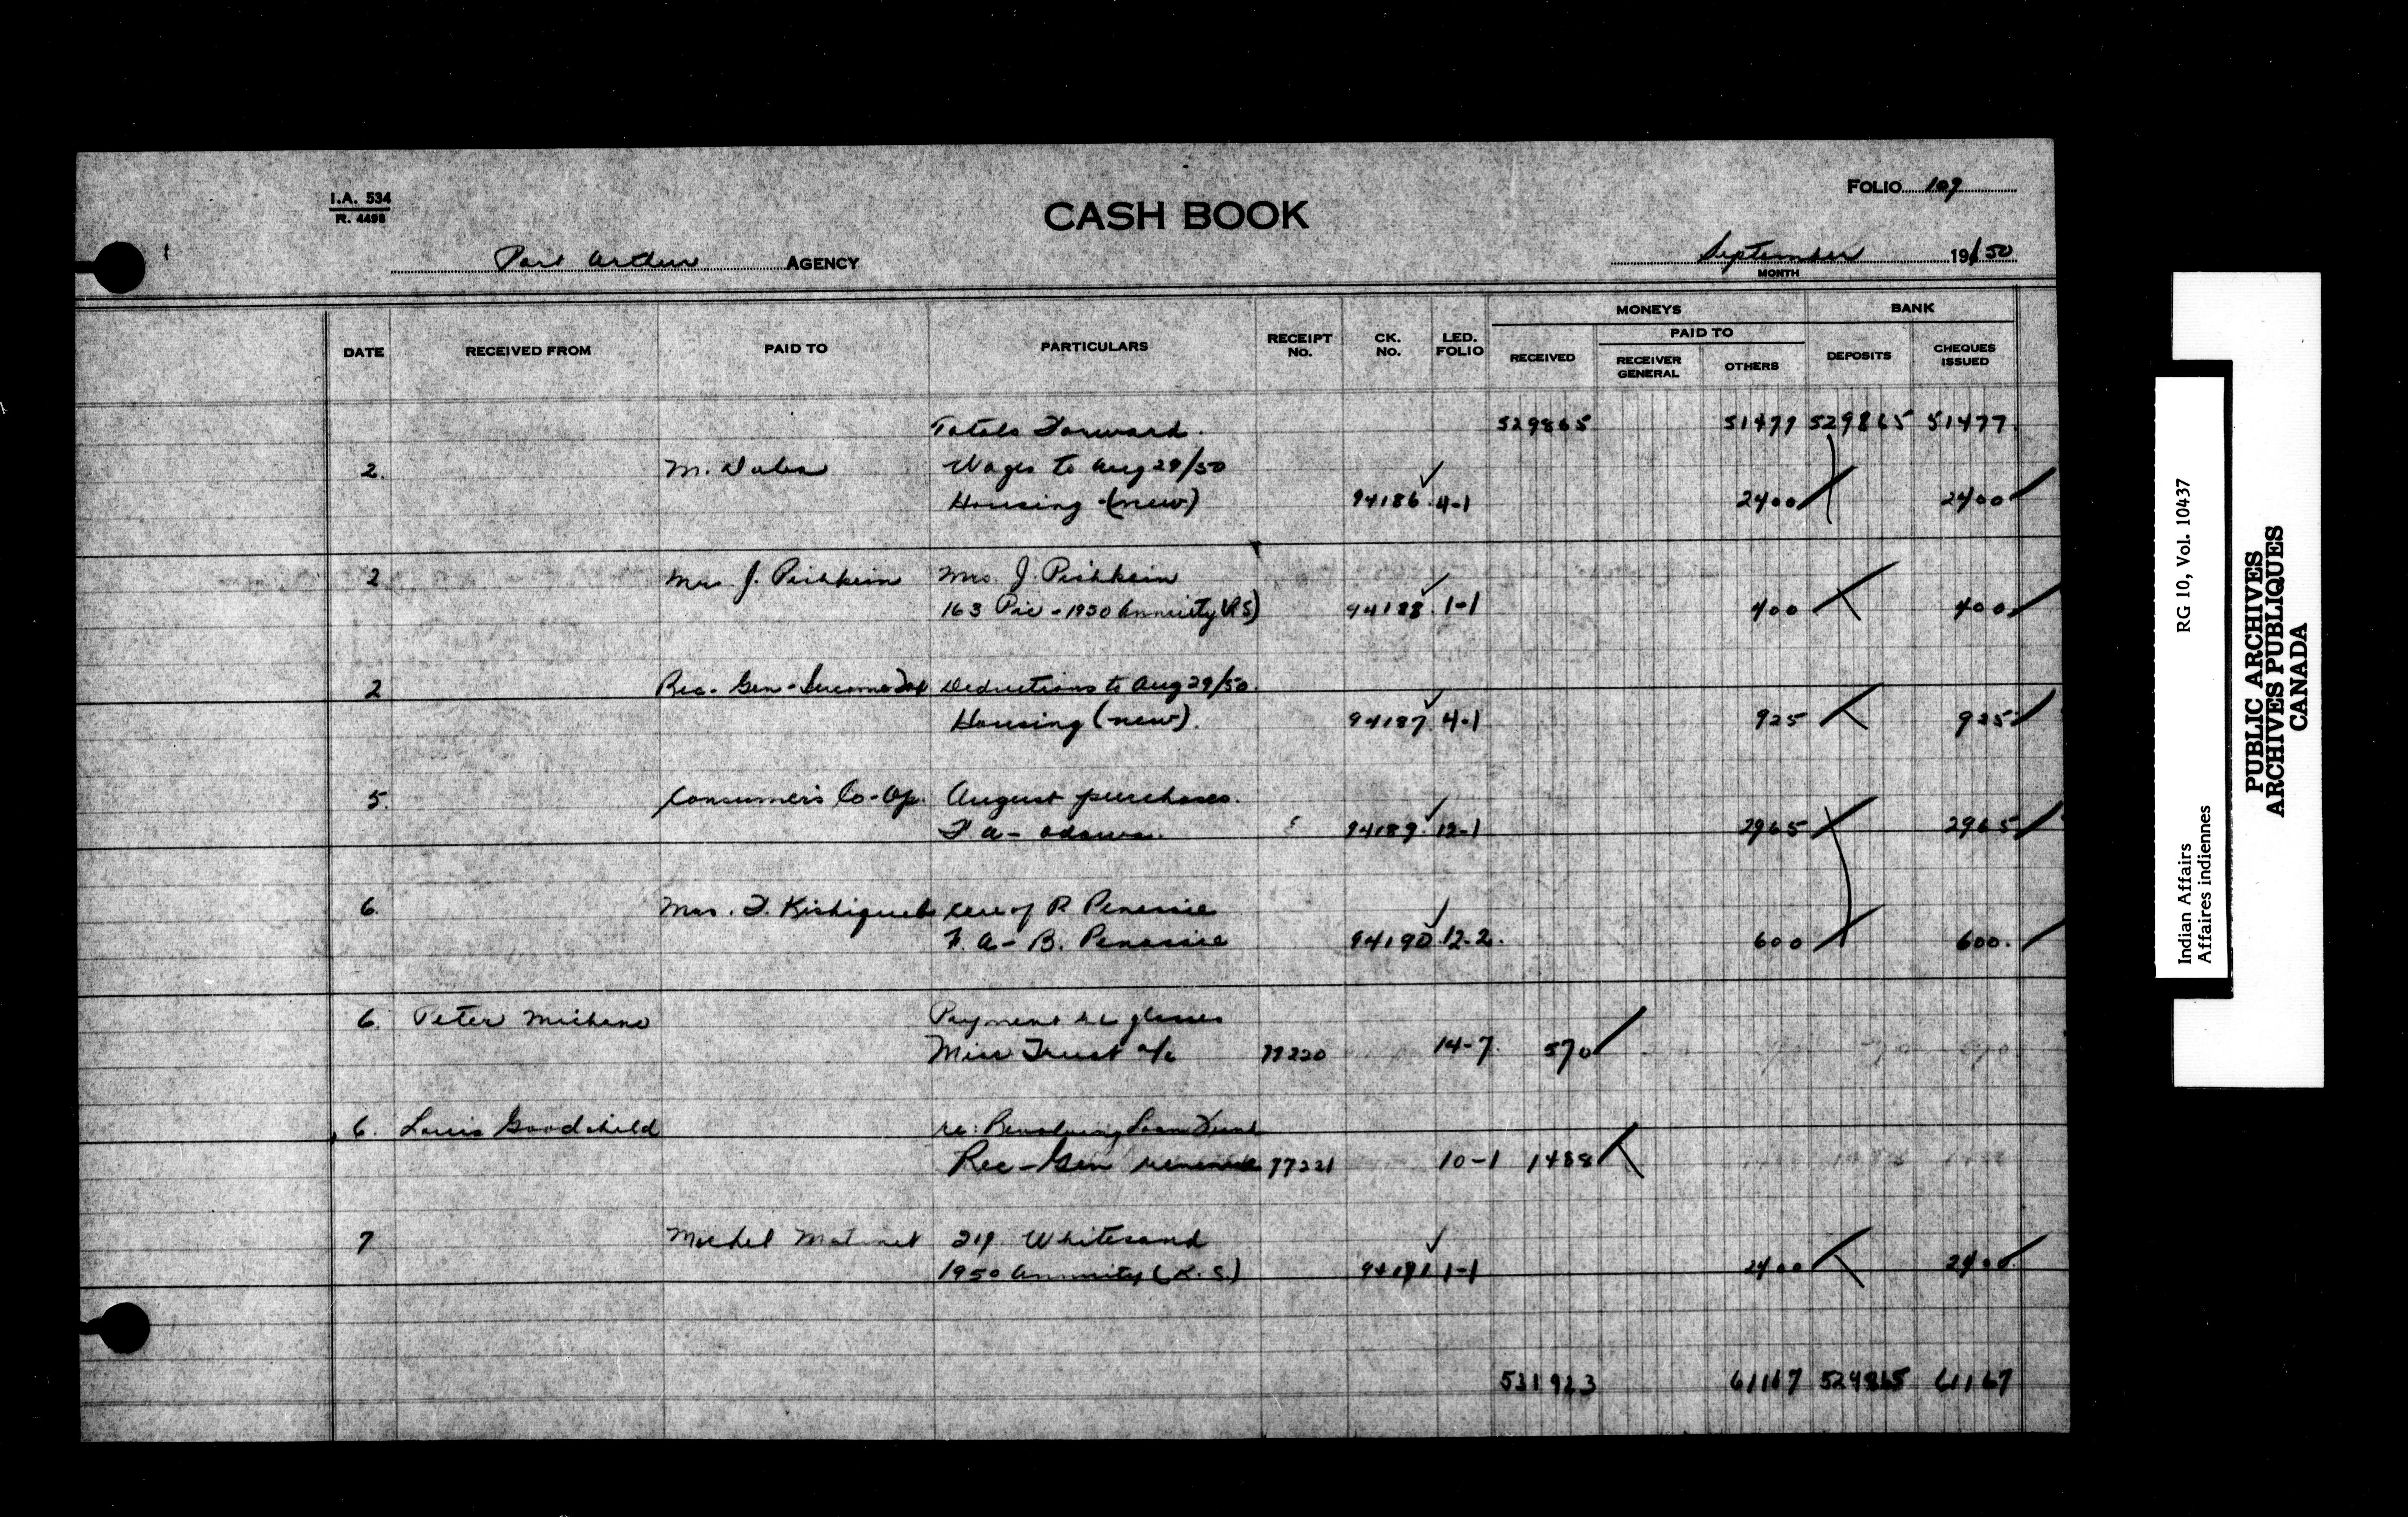 I.A. 534
R. 4498
CASH BOOK
FOLIO 109
Port Arthur AGENCY
September 1950
MONTH
DATE RECEIVED FROM PAID TO PARTICULARS RECEIPT NO. CK. NO. LED. FOLIO MONEYS RECEIVED PAID TO RECEIVER GENERAL OTHERS BANK DEPOSITS CHEQUES ISSUED
Totals Forward. 529865 51477 529865 51477
2. M. Wages to Aug 29/50
Housing (new) 94186 4-1 2400 2400
2 Mrs J. Pishkein Mrs. J. Pishkein
163 Pic - 1950 Annuity (R.S) 94188 1-1 400 400
2 Rec. Gen - Income Tax Deductions to Aug 29/50.
Housing (new). 94187 4-1 925 925
5. Consumer's Co-Op. August purchases.
F A - 94189 12-1 2965 2965
6. Mrs. F. care of R Penessie
F. A - B. Penessie 94190 12-2. 600 600.
6. Peter Michano Payment re glasses
Misc Trust a/c 77220 14-7 570
6. Louis Goodchild re: Revolving Loan Fund
Rec - Gen revenue 77221 10-1 1488
7 Michel 219 Whitesand
1950 Annuity (R. S.) 94191 1-1 2400 2400
531923 61167 529865 61167
Indian Affairs RG 10, Vol. 10437
Affaires indiennes
PUBLIC ARCHIVES
ARCHIVES PUBLIQUES
CANADA